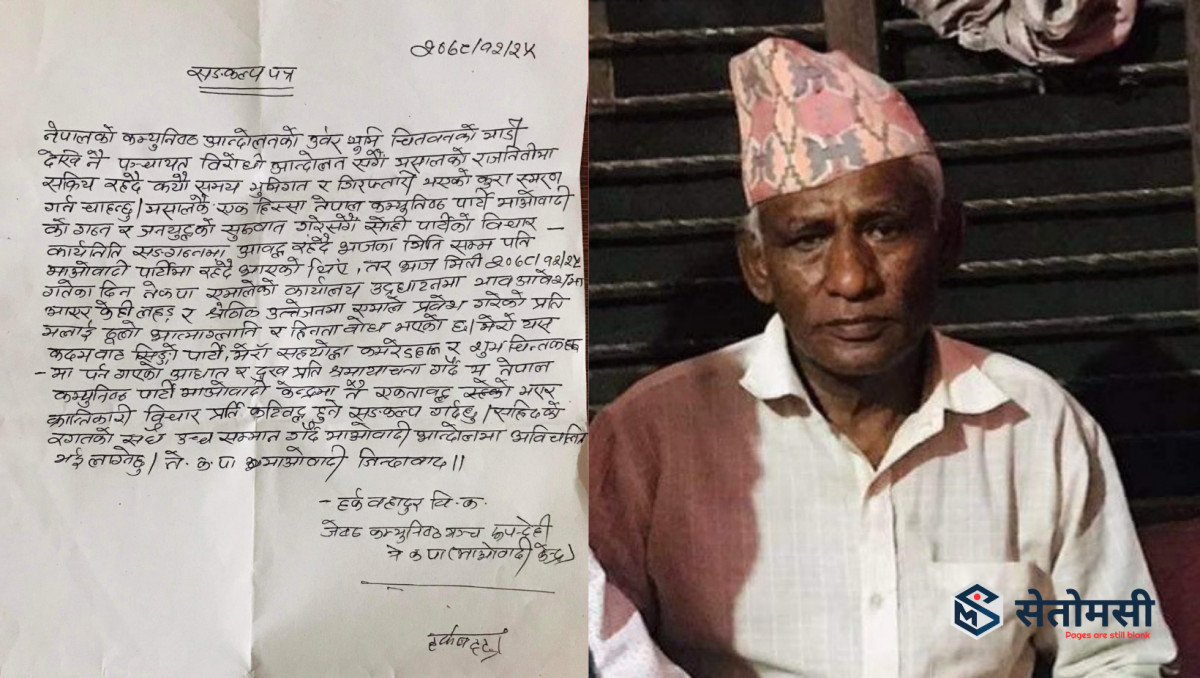 २०७८/१२/२५
सङ्कल्प पत्र
नेपालको कम्युनिष्ठ आन्दोलनको उर्वर भूमि चितवनको माडी
देखि नै पञ्चायत विरोधी आन्दोलन सँगै मसालको राजनितीमा
सक्रिय रहदै कयौ समय भुमिगत र गिरफ्तारी भएको कुरा स्मरण
गर्न चाहन्छु। मसालकै एक हिस्सा नेपाल कम्युनिष्ठ पार्टी माओवादी
को गठन र जनयुद्धको सुरुवात गरेसँगै सोही पार्टीको विचार
कार्यनिति सङगठनमा आवद्ध रहदै आजका मिति सम्म पनि
माओवादी पार्टीमा रहदै आएको थिए, तर आज मिती २०७८/१२/२५
गतेका दिन नेकपा एमालेको कार्यालय उद्घाटनमा भाव आवेशमा
आएर केही लहड र क्षेणिक उत्तेजनामा एमाले प्रवेश गरेको प्रति
मलाई ठूलो आत्माग्लानि र हिनता बोध भएको छ। मेरो यस
कदमबाट सिङ्गो पार्टी, मेरा सहयोद्धा कमरेडहरू र शुभचिन्तकहरू
- मा पर्न गएको आघात र दुःख प्रति क्षमायाचना गर्दै म नेपाल
कम्युनिष्ठ पार्टी माओवादी केन्द्रमा नै एकतावद्ध रहेको भएर
क्रान्तिकारी विचार प्रति कटिवद्ध हुने सङकल्प गर्दछु। सहिदको
रगतको सधै उच्च सम्मान गर्दै माओवादी आन्दोलमा अविचलित
भई लाग्नेछु। ने. क. पा माओवादी जिन्दावाद।।
- हर्क वहादुर वि. क.
जेष्ठ कम्युनिष्ठ मञ्च रूपन्देही
ने क पा (माओवादी केन्द्र)
सेतोमसी
Pages are still blank